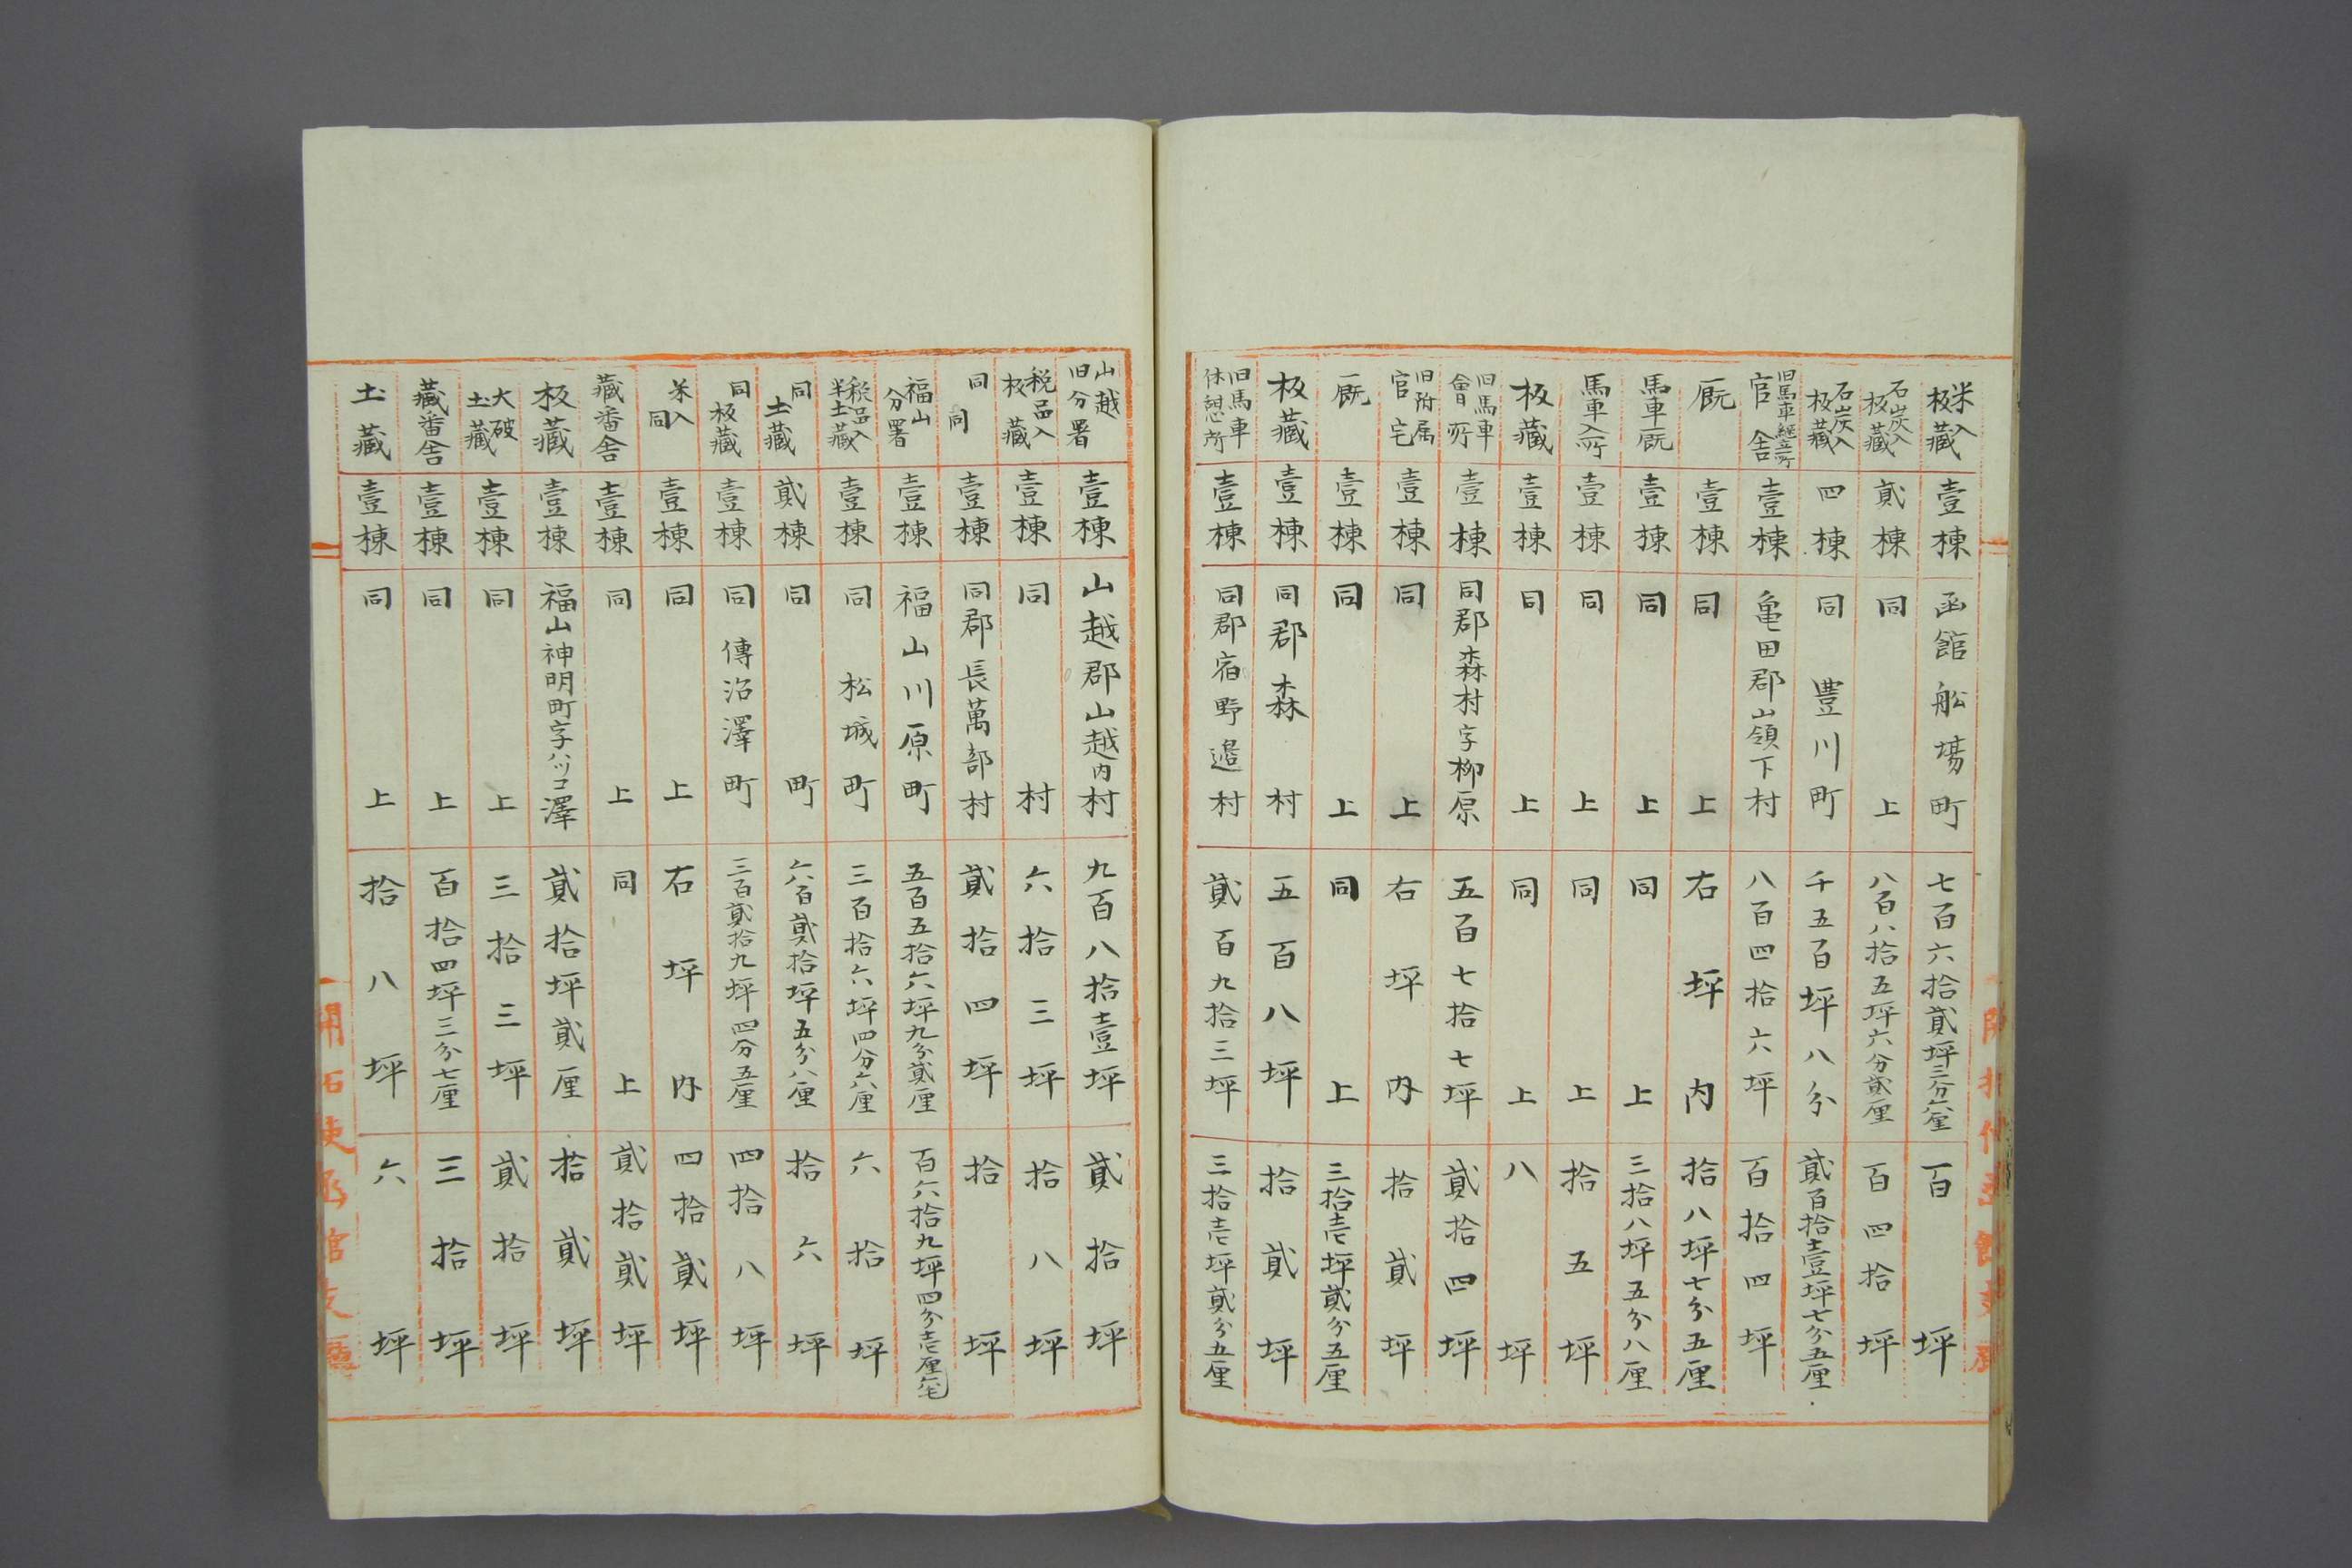 米入板藏 壹棟 函館船場町 七百六拾貳坪三分六厘 百坪
石炭入板藏 貳棟 同上 八百八拾五坪六分貳厘 百四拾坪
石炭入板藏 四棟 同豊川町 千五百坪八分 貳百拾壹坪七分五厘
旧馬車継立所官舍 壹棟 亀田郡山嶺下村 八百四拾六坪 百拾四坪
厩 壹棟 同上 右坪内 拾八坪七分五厘
馬車厩 壹棟 同上 同上 三拾八坪五分八厘
馬車入所 壹棟 同上 同上 拾五坪
板藏 壹棟 同上 同上 八坪
旧馬車會所 壹棟 同郡森村字柳原 五百七拾七坪 貳拾四坪
旧附属官宅 壹棟 同上 右坪内 拾貳坪
厩 壹棟 同上 同上 三拾壱坪貳分五厘
板藏 壹棟 同郡森村 五百八坪 拾貳坪
旧馬車休憩所 壹棟 同郡宿野邉村 貳百九拾三坪 三拾壱坪貳分五厘
山越旧分署 壹棟 山越郡山越内村 九百八拾壹坪 貳拾坪
税品入板藏 壹棟 同村 六拾三坪 拾八坪
同同 壹棟 同郡長萬部村 貳拾四坪 拾坪
福山分署 壹棟 福山川原町 五百五拾六坪九分貳厘 百六拾九坪四分壱厘
税品入半土藏 壹棟 同松城町 三百拾六坪四分六厘 六拾坪
同土藏 貳棟 同町 六百貳拾坪五分八厘 拾六坪
同板藏 壹棟 同傳沼澤町 三百貳拾九坪四分五厘 四拾八坪
米入同 壹棟 同上 右坪内 四拾貳坪
藏番舍 壹棟 同上 同上 貳拾貳坪
板藏 壹棟 福山神明町字ハツコ澤 貳拾坪貳厘 拾貳坪
大破土藏 壹棟 同上 三拾三坪 貳拾坪
藏番舍 壹棟 同上 百拾四坪三分七厘 三拾坪
土藏 壹棟 同上 拾八坪 六坪
開拓使函館支廳